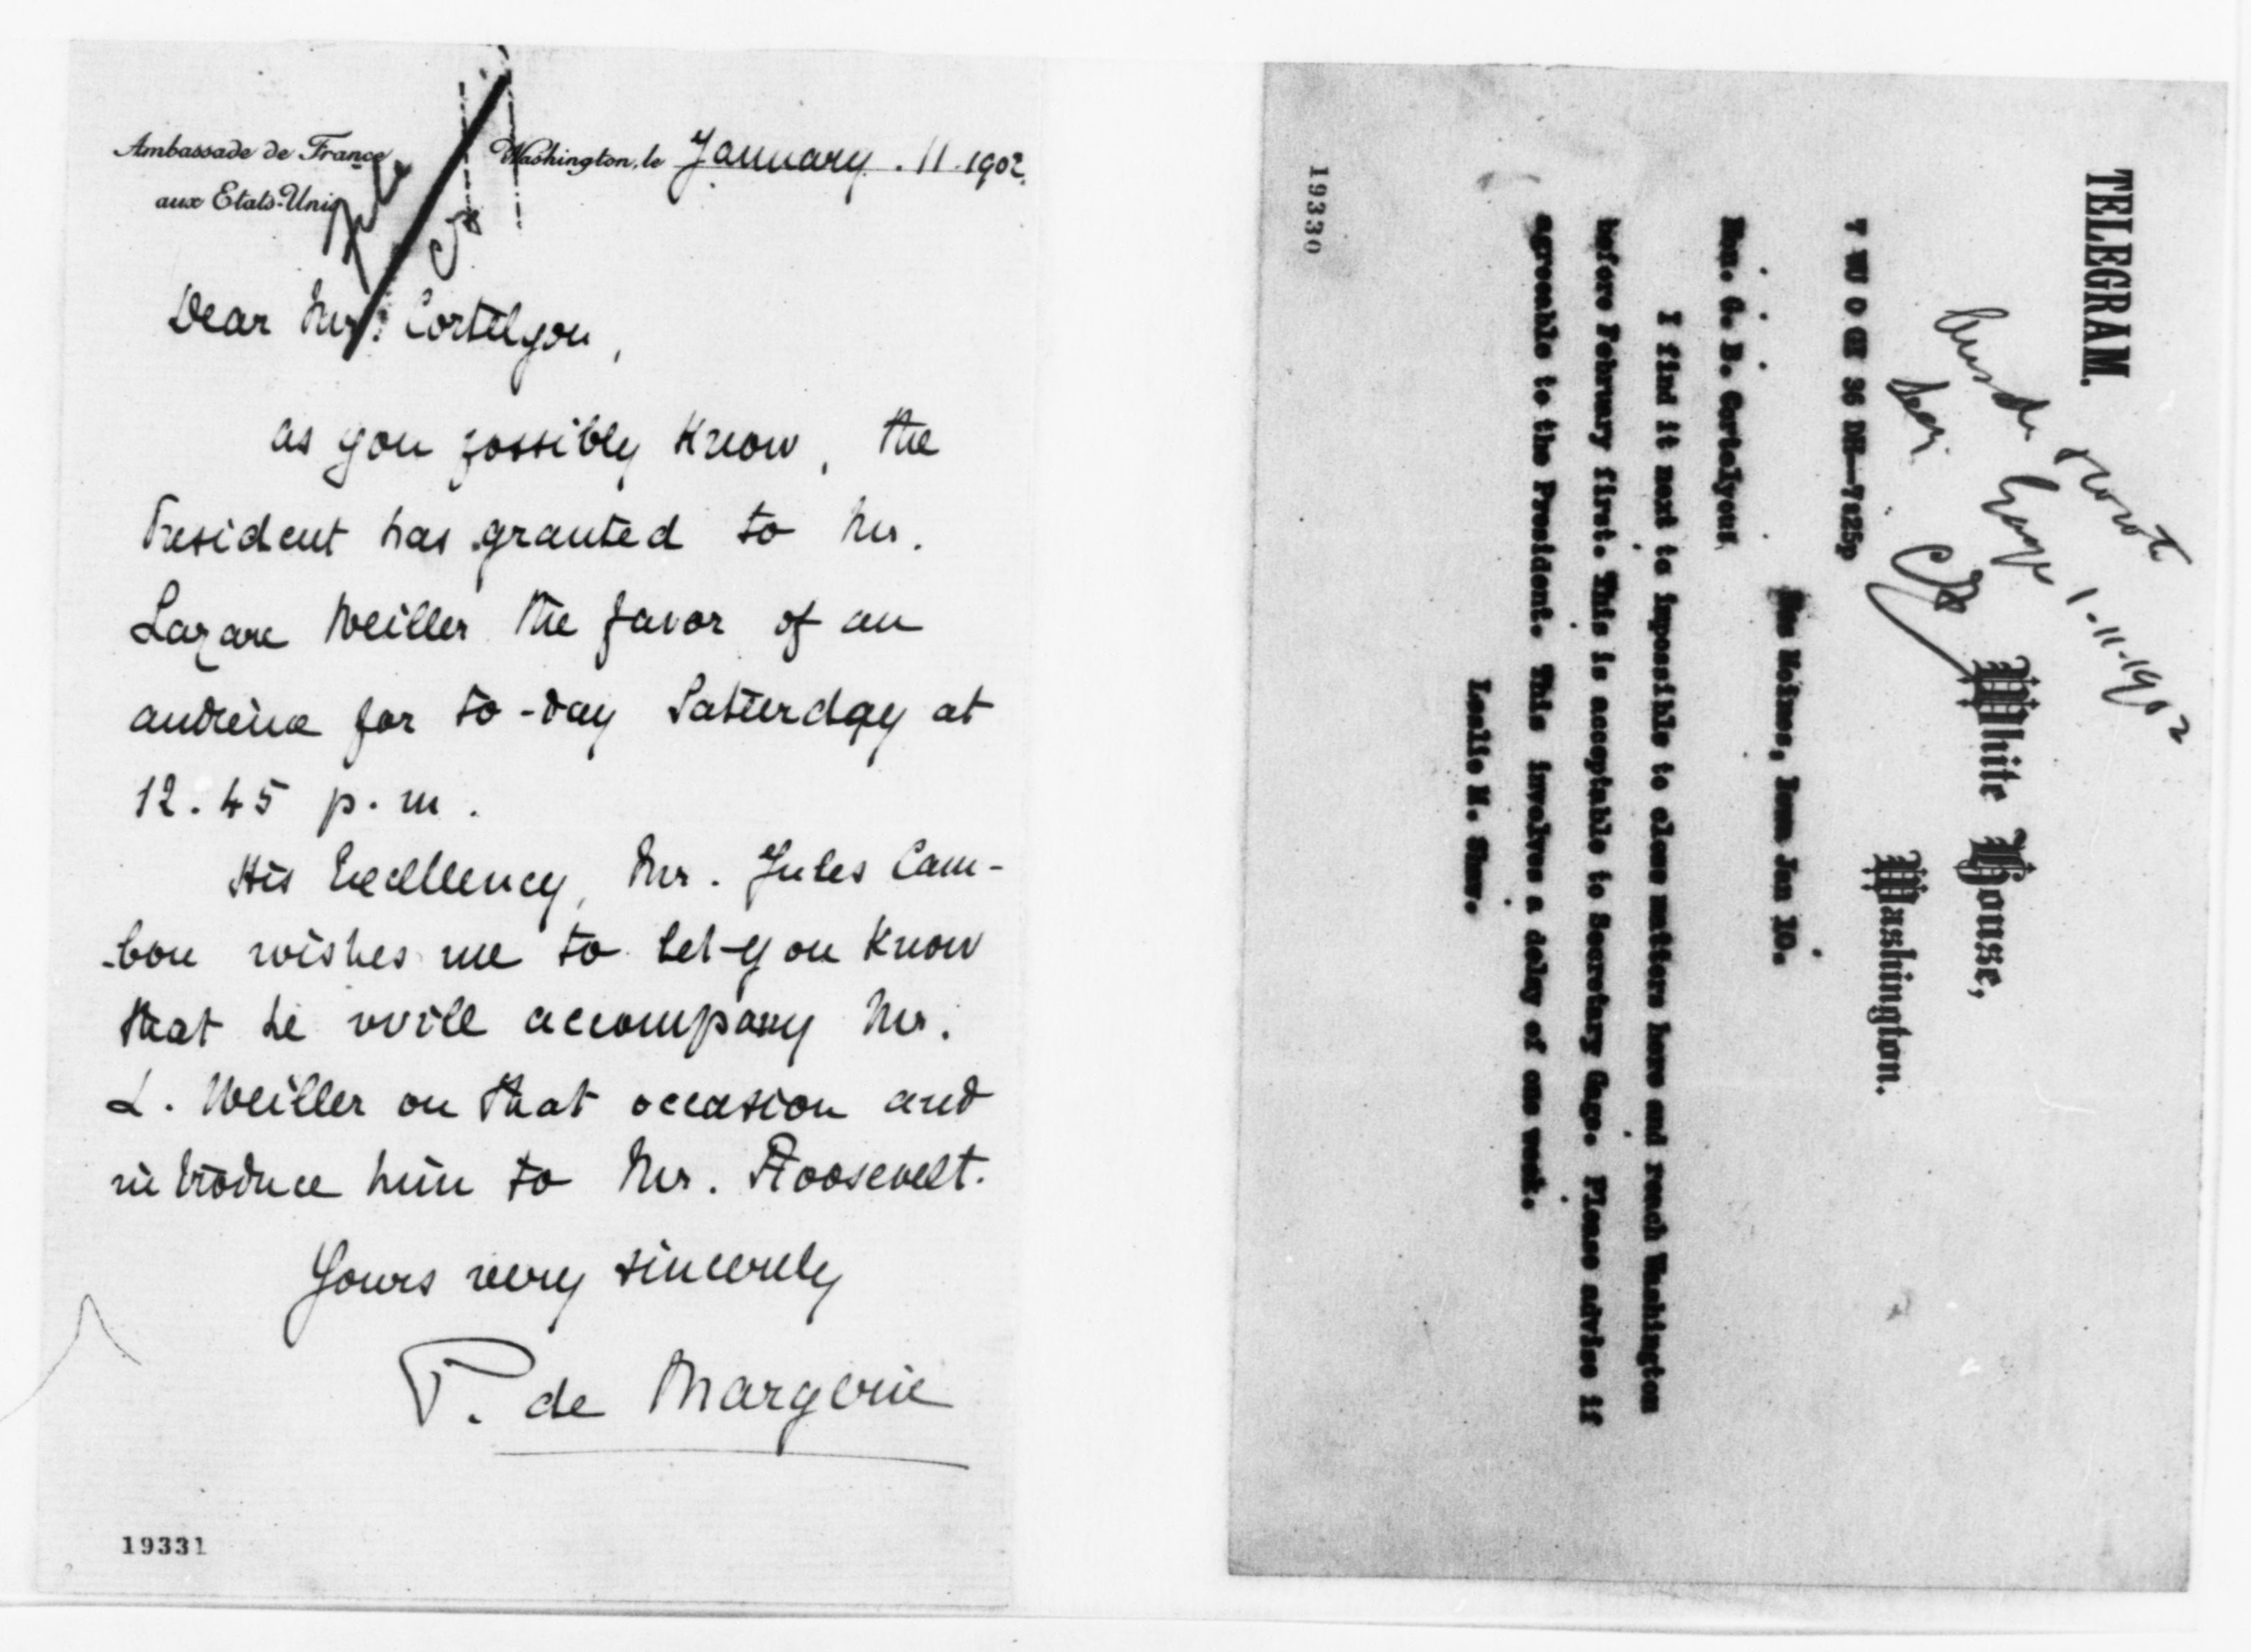 Ambassade de France
aux Etats-Unis
Washington, le January. 11. 1902.
File
Dear Mr. Cortelyou,
as you possibly know, the
President has granted to Mr.
Lazare Weiller the favor of an
audience for to-day Satterday at
12.45 p.m.
His Excellency, Mr. Jules Cam-
-bon wishes me to let you know
that he will accompany Mr.
L. Weiller on that occasion and
introduce him to Mr. Roosevelt.
Yours very sincerely
P. de Margerie
19331
TELEGRAM.
White House,
Washington.
1-11-1902
7 WU O GI 36 DH—7:25p
Des Moines, Iowa Jan 10.
Hon. G. B. Cortelyou:
I find it next to impossible to close matters here and reach Washington
before February first. This is acceptable to Secretary Gage. Please advise if
agreeable to the President. This involves a delay of one week.
Leslie M. Shaw.
19330